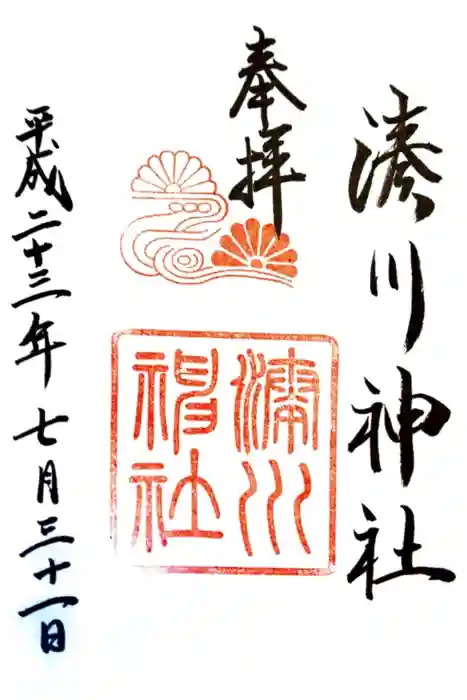 湊川神社
奉拝
湊川
神社
平成二十三年七月三十一日